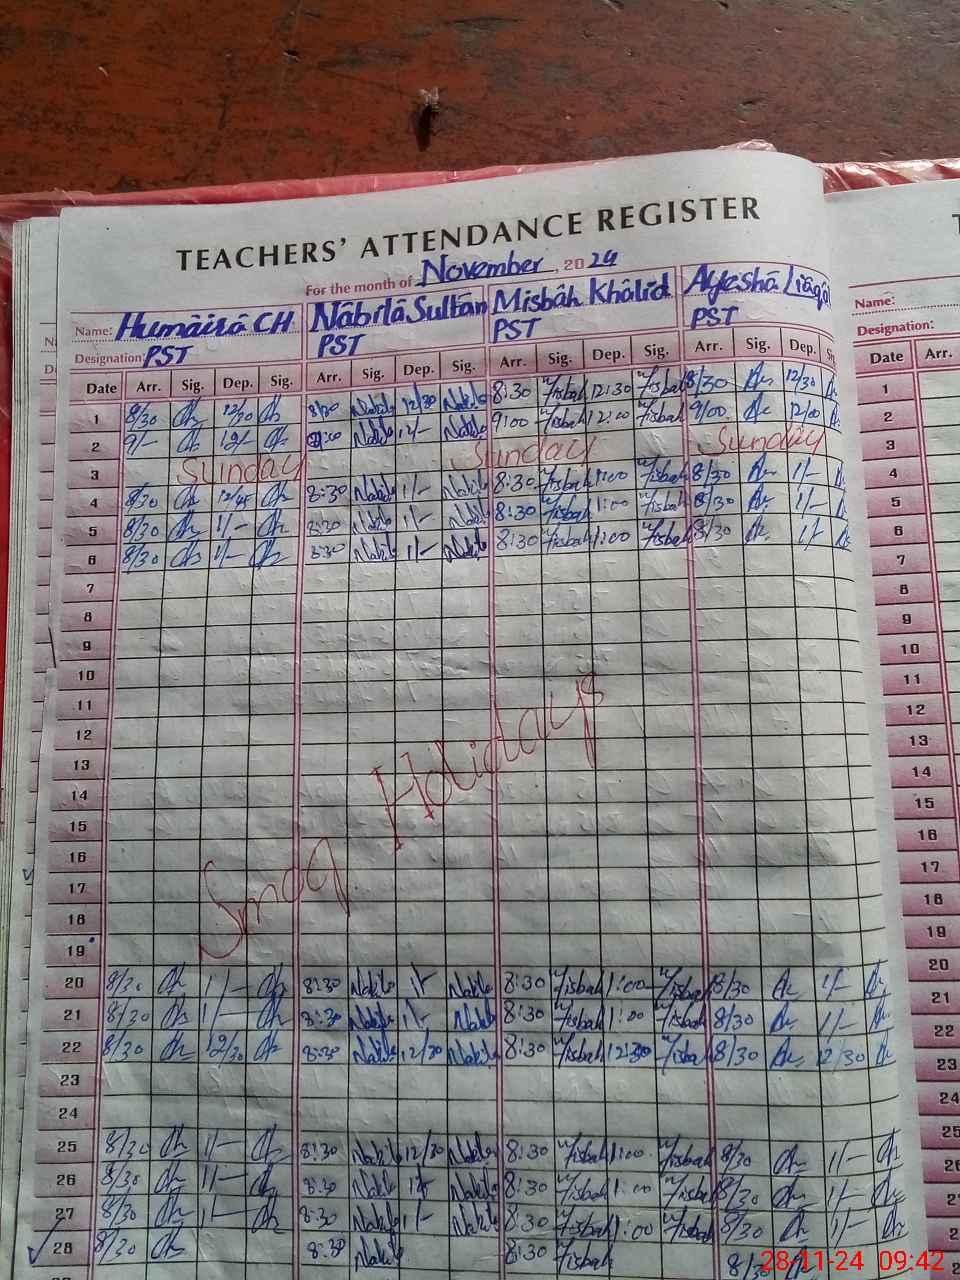 TEACHERS' ATTENDANCE REGISTER
For the month of November, 2024
Name: Humaira CH Nabila Sultan Misbah Khalid Ayesha Liaqa
Designation: PST PST PST PST
Date Arr. Sig. Dep. Sig. Arr. Sig. Dep. Sig. Arr. Sig. Dep. Sig. Arr. Sig. Dep. Sig
1 8/30 12/30 8/30 Nabila 12/30 Nabila 8:30 Misbah 12:30 Misbah 8/30 12/30
2 9/- 12/- 9:00 Nabila 12/- Nabila 9:00 Misbah 12:00 Misbah 9/00 12/00
3 Sunday Sunday Sunday
4 8/30 12/45 8:30 Nabila 1/- Nabila 8:30 Misbah 1:00 Misbah 8/30 1/-
5 8/30 1/- 8:30 Nabila 1/- Nabila 8:30 Misbah 1:00 Misbah 8/30 1/-
6 8/30 1/- 8:30 Nabila 1/- Nabila 8:30 Misbah 1:00 Misbah 8/30 1/-
7
8
9
10
11
12
13
14
15
16
17
18
19
Smog Holidays
20 8/30 1/- 8:30 Nabila 1/- Nabila 8:30 Misbah 1:00 Misbah 8/30 1/-
21 8/30 1/- 8:30 Nabila 1/- Nabila 8:30 Misbah 1:00 Misbah 8/30 1/-
22 8/30 12/30 8:30 Nabila 12/30 Nabila 8:30 Misbah 12:30 Misbah 8/30 12/30
23
24
25 8/30 1/- 8:30 Nabila 12/30 Nabila 8:30 Misbah 1:00 Misbah 8/30 1/-
26 8/30 1/- 8:30 Nabila 1/- Nabila 8:30 Misbah 1:00 Misbah 8/30 1/-
27 8/30 1/- 8:30 Nabila 1/- Nabila 8:30 Misbah 1:00 Misbah 8/30 1/-
28 8/30 8:30 Nabila 8:30 Misbah 8/3
Name:
Designation:
Date Arr.
1
2
3
4
5
6
7
8
9
10
11
12
13
14
15
16
17
18
19
20
21
22
23
24
25
26
28-11-24 09:42